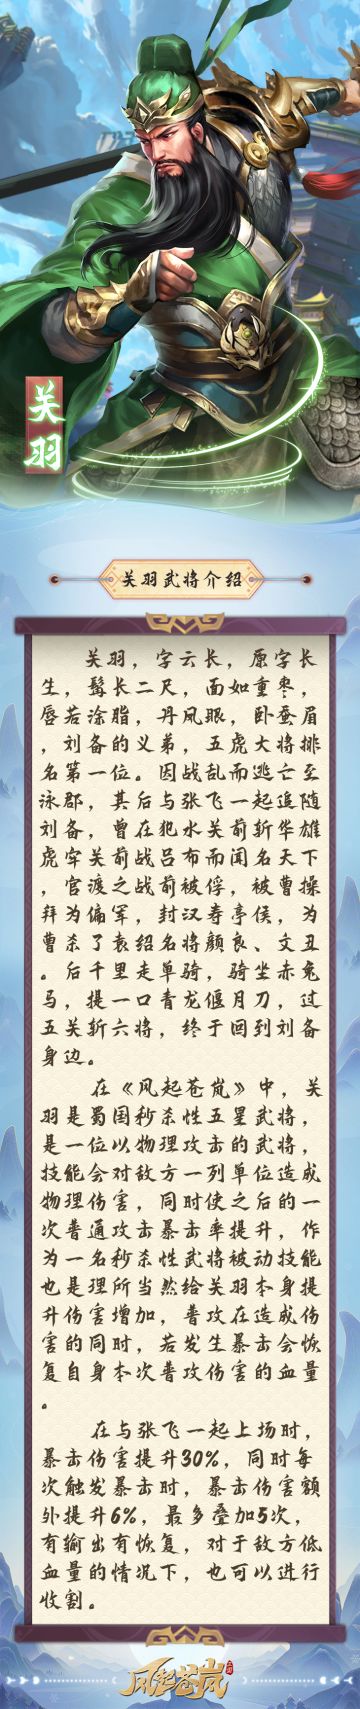 关羽
关羽武将介绍
关羽，字云长，原字长
生，髯长二尺，面如重枣，
唇若涂脂，丹凤眼，卧蚕眉
，刘备的义弟，五虎大将排
名第一位。因战乱而逃亡至
涿郡，其后与张飞一起追随
刘备，曾在汜水关前斩华雄
虎牢关前战吕布而闻名天下
，官渡之战前被俘，被曹操
拜为偏军，封汉寿亭侯，为
曹杀了袁绍名将颜良、文丑
。后千里走单骑，骑坐赤兔
马，提一口青龙偃月刀，过
五关斩六将，终于回到刘备
身边。
在《风起苍岚》中，关
羽是蜀国秒杀性五星武将，
是一位以物理攻击的武将，
技能会对敌方一列单位造成
物理伤害，同时使之后的一
次普通攻击暴击率提升，作
为一名秒杀性武将被动技能
也是理所当然给关羽本身提
升伤害增加，普攻在造成伤
害的同时，若发生暴击会恢
复自身本次普攻伤害的血量
。
在与张飞一起上场时，
暴击伤害提升30%，同时每
次触发暴击时，暴击伤害额
外提升6%，最多叠加5次，
有输出有恢复，对于敌方低
血量的情况下，也可以进行
收割。
风起苍岚